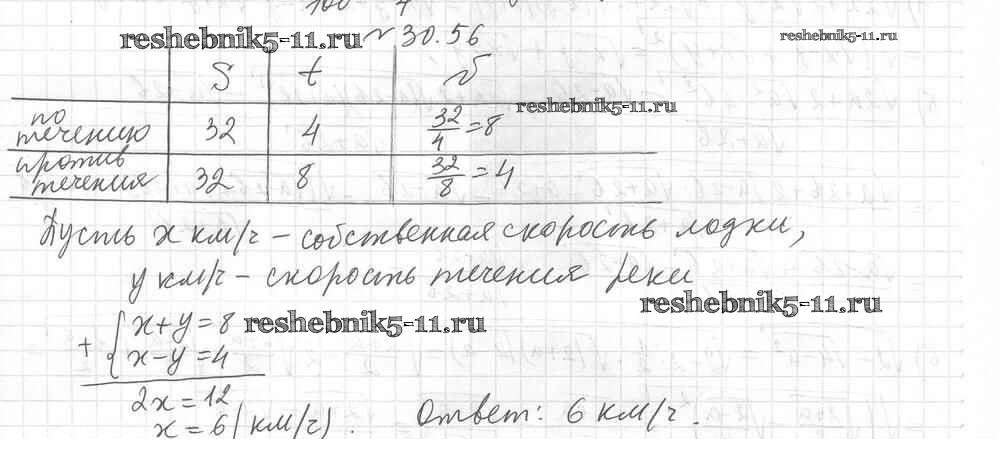 reshebnik5-11.ru № 30.56 reshebnik5-11.ru
S t v
reshebnik5-11.ru
по течению 32 4 32/4 = 8
против течения 32 8 32/8 = 4
Пусть x км/ч – собственная скорость лодки,
y км/ч – скорость течения реки
reshebnik5-11.ru
+ { x + y = 8 reshebnik5-11.ru
x – y = 4
2x = 12
x = 6 (км/ч). Ответ: 6 км/ч.